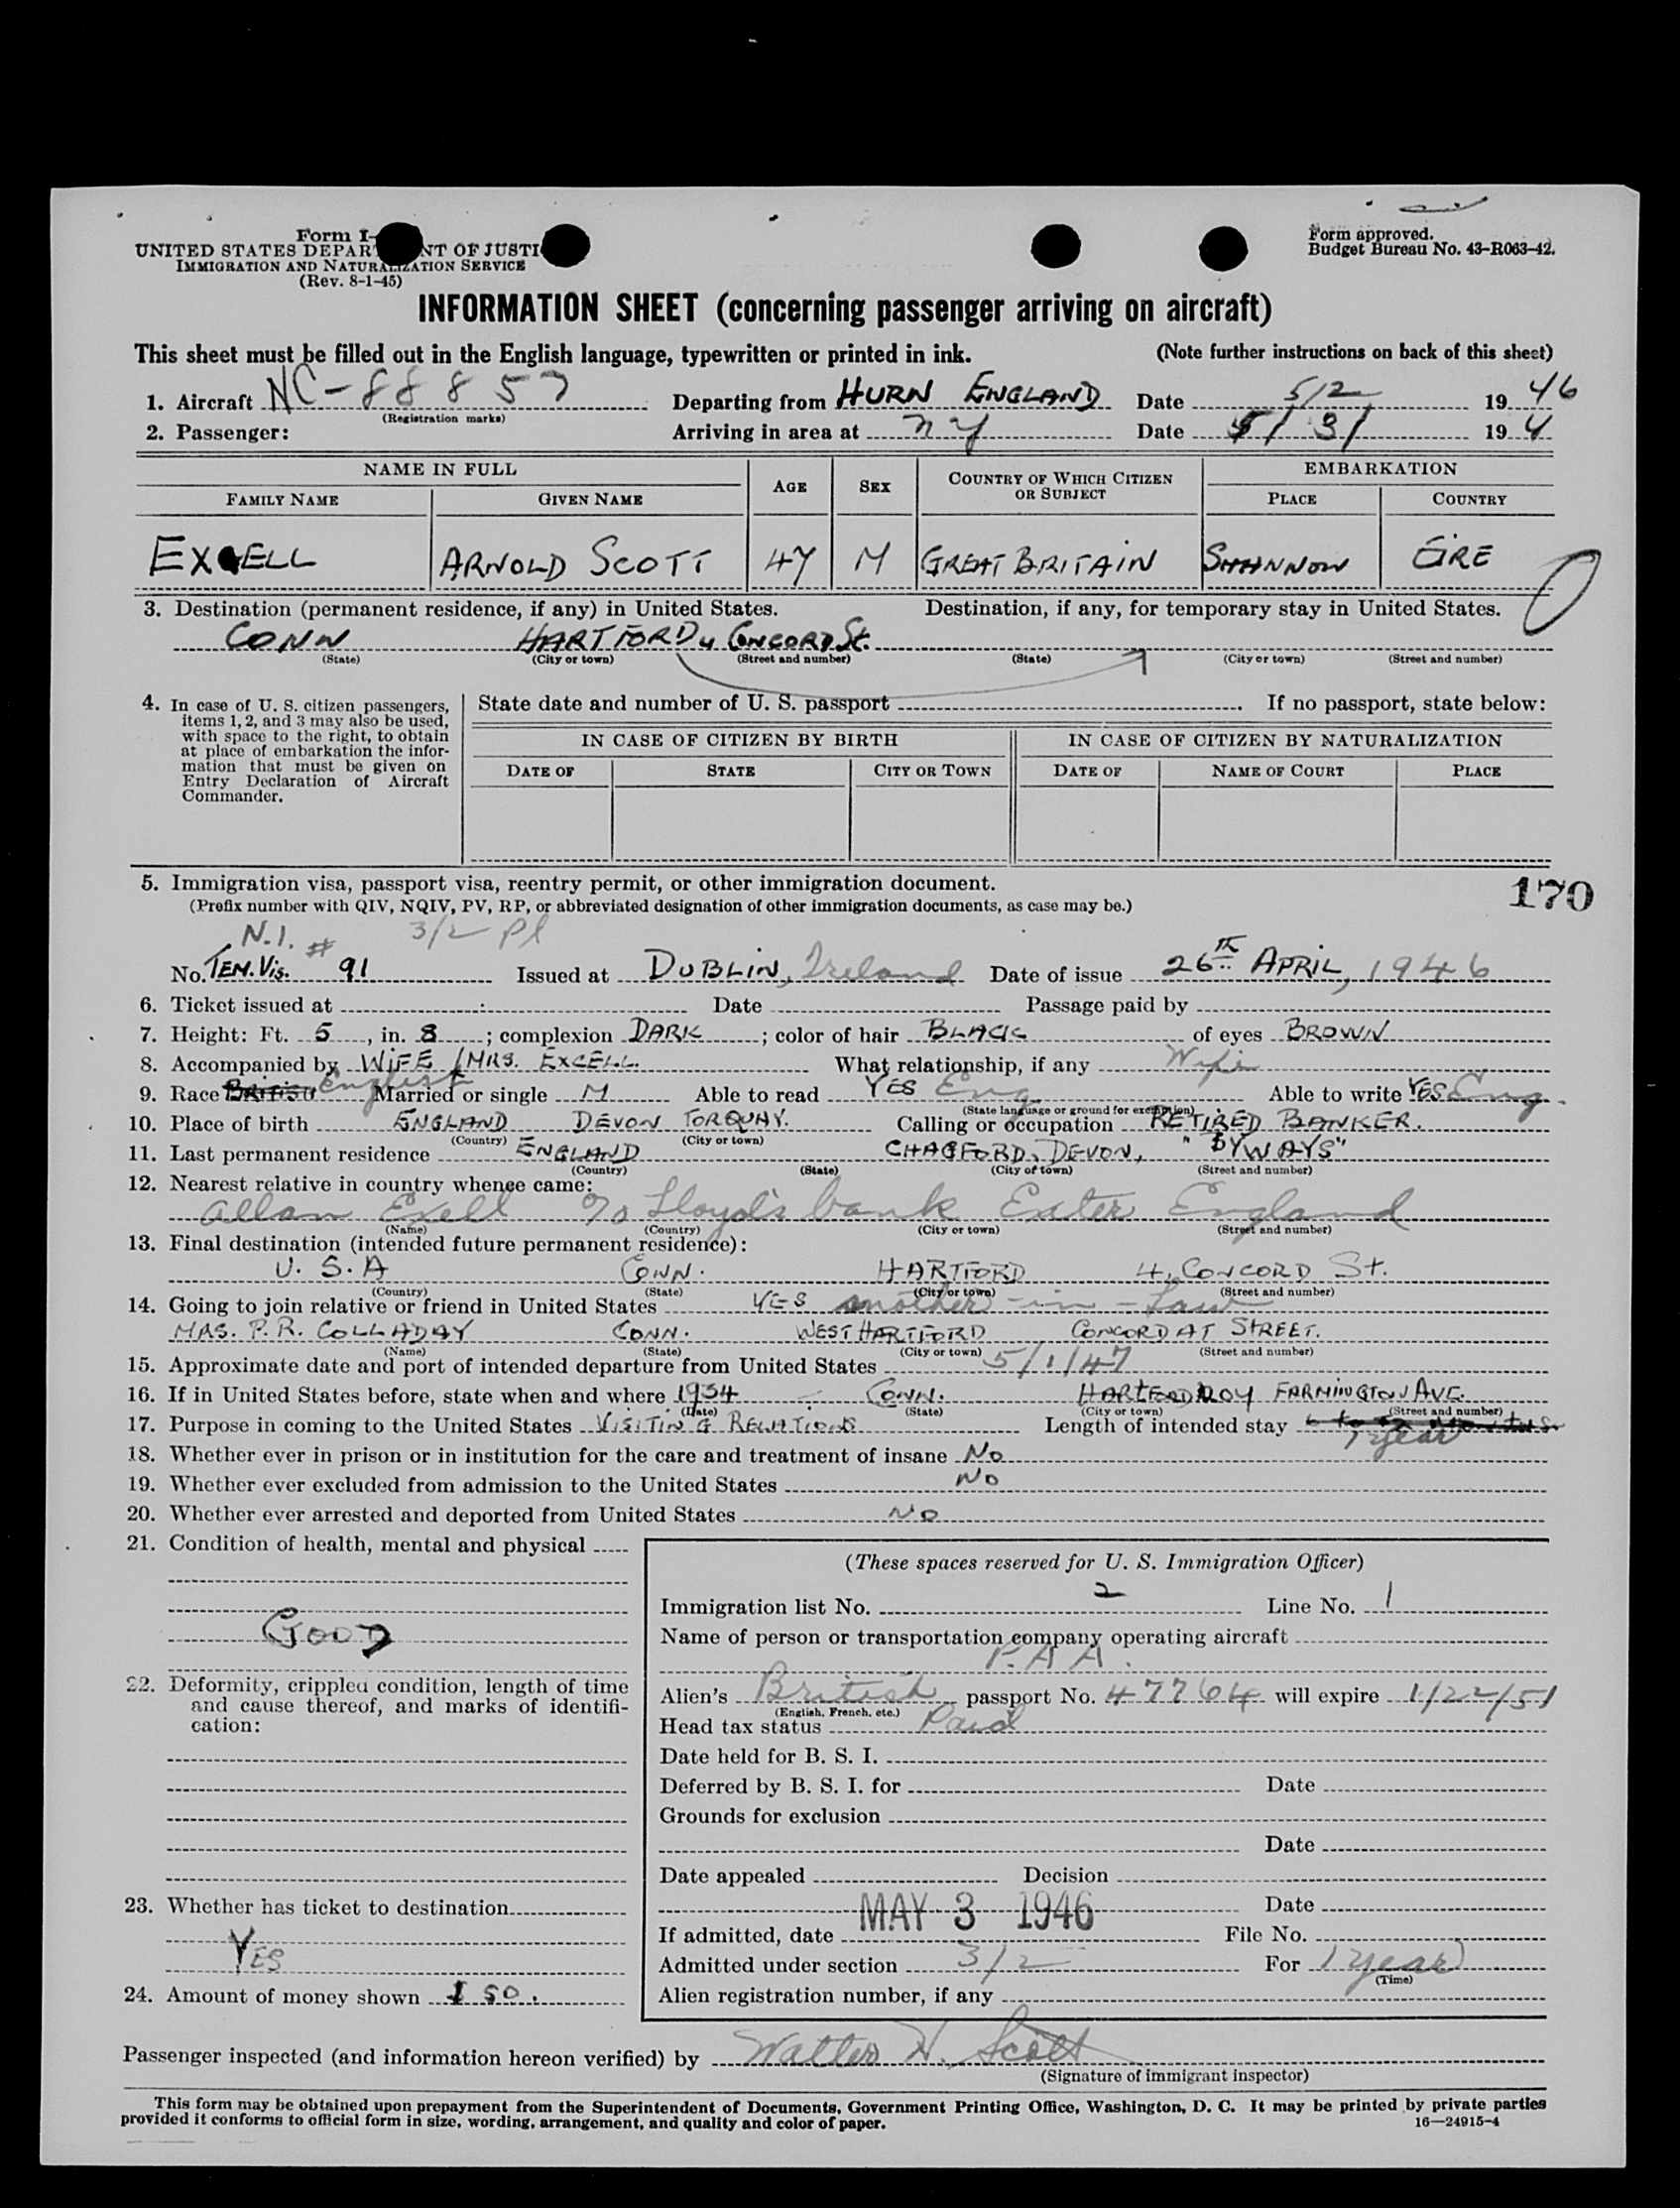 Form I-
UNITED STATES DEPAR NT OF JUSTI
IMMIGRATION AND NATURALIZATION SERVICE
(Rev. 8-1-45)
Form approved.
Budget Bureau No. 43-R063-42.
INFORMATION SHEET (concerning passenger arriving on aircraft)
This sheet must be filled out in the English language, typewritten or printed in ink. (Note further instructions on back of this sheet)
1. Aircraft NC-88857 Departing from HURN ENGLAND Date 5/2 1946
(Registration marks)
2. Passenger: Arriving in area at NY Date 5/3/ 194
NAME IN FULL AGE SEX COUNTRY OF WHICH CITIZEN OR SUBJECT EMBARKATION
FAMILY NAME GIVEN NAME PLACE COUNTRY
EXCELL ARNOLD SCOTT 47 M GREAT BRITAIN SHANNON EIRE
3. Destination (permanent residence, if any) in United States. Destination, if any, for temporary stay in United States.
CONN HARTFORD 4 CONCORD St.
(State) (City or town) (Street and number) (State) (City or town) (Street and number)
4. In case of U. S. citizen passengers, items 1, 2, and 3 may also be used, with space to the right, to obtain at place of embarkation the information that must be given on Entry Declaration of Aircraft Commander.
State date and number of U. S. passport If no passport, state below:
IN CASE OF CITIZEN BY BIRTH IN CASE OF CITIZEN BY NATURALIZATION
DATE OF STATE CITY OR TOWN DATE OF NAME OF COURT PLACE
5. Immigration visa, passport visa, reentry permit, or other immigration document. 170
(Prefix number with QIV, NQIV, PV, RP, or abbreviated designation of other immigration documents, as case may be.)
N.I. # 3/2 Pl
No. TEM. Vis. 91 Issued at DUBLIN, Ireland Date of issue 26TH APRIL, 1946
6. Ticket issued at Date Passage paid by
7. Height: Ft. 5, in. 8; complexion DARK; color of hair BLACK of eyes BROWN
8. Accompanied by WIFE /MRS. EXCELL What relationship, if any Wife
9. Race BRITISH English Married or single M Able to read YES Eng Able to write YES Eng.
(State language or ground for exemption)
10. Place of birth ENGLAND DEVON TORQUAY. Calling or occupation RETIRED BANKER.
(Country) (City or town)
11. Last permanent residence ENGLAND CHAGFORD, DEVON, "BYWAYS"
(Country) (State) (City or town) (Street and number)
12. Nearest relative in country whence came:
Allan Exell c/o Lloyd's bank Exeter England
(Name) (Country) (City or town) (Street and number)
13. Final destination (intended future permanent residence):
U. S. A CONN. HARTFORD 4, CONCORD St.
(Country) (State) (City or town) (Street and number)
14. Going to join relative or friend in United States YES mother-in-Law
MRS. P. R. COLLADAY CONN. WEST HARTFORD CONCORD AT STREET.
(Name) (State) (City or town) (Street and number)
15. Approximate date and port of intended departure from United States 5/1/47
16. If in United States before, state when and where 1934 CONN. HARTFORD FARMINGTON AVE.
(Date) (State) (City or town) (Street and number)
17. Purpose in coming to the United States VISITING RELATIONS Length of intended stay 1 year
18. Whether ever in prison or in institution for the care and treatment of insane No
19. Whether ever excluded from admission to the United States No
20. Whether ever arrested and deported from United States No
21. Condition of health, mental and physical
GOOD
22. Deformity, crippled condition, length of time and cause thereof, and marks of identification:
23. Whether has ticket to destination
YES
24. Amount of money shown £ 50.
(These spaces reserved for U. S. Immigration Officer)
Immigration list No. 2 Line No. 1
Name of person or transportation company operating aircraft
P.A.A.
Alien's British passport No. 47764 will expire 1/22/51
(English, French, etc.)
Head tax status Paid
Date held for B. S. I.
Deferred by B. S. I. for Date
Grounds for exclusion
Date
Date appealed Decision
Date
If admitted, date MAY 3 1946 File No.
Admitted under section 3/2 For 1 year
(Time)
Alien registration number, if any
Passenger inspected (and information hereon verified) by Walter H. Scott
(Signature of immigrant inspector)
This form may be obtained upon prepayment from the Superintendent of Documents, Government Printing Office, Washington, D. C. It may be printed by private parties
provided it conforms to official form in size, wording, arrangement, and quality and color of paper. 16—24915-4